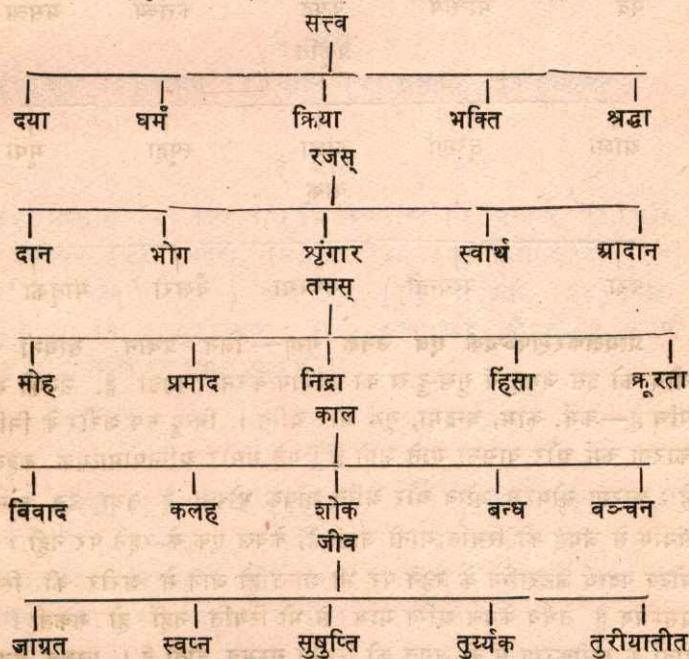 सत्त्व
दया धर्म क्रिया भक्ति श्रद्धा
रजस्
दान भोग श्रृंगार स्वार्थ आदान
तमस्
मोह प्रमाद निद्रा हिंसा क्रूरता
काल
विवाद कलह शोक बन्ध वञ्चन
जीव
जाग्रत स्वप्न सुषुप्ति तुर्य्यक तुरीयातीत